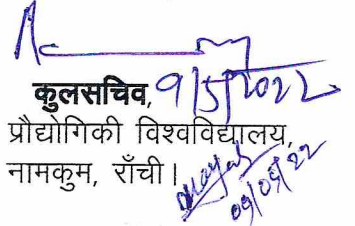 कुलसचिव, 9/5/2022
प्रौद्योगिकी विश्वविद्यालय,
नामकुम, राँची।
09/05/22